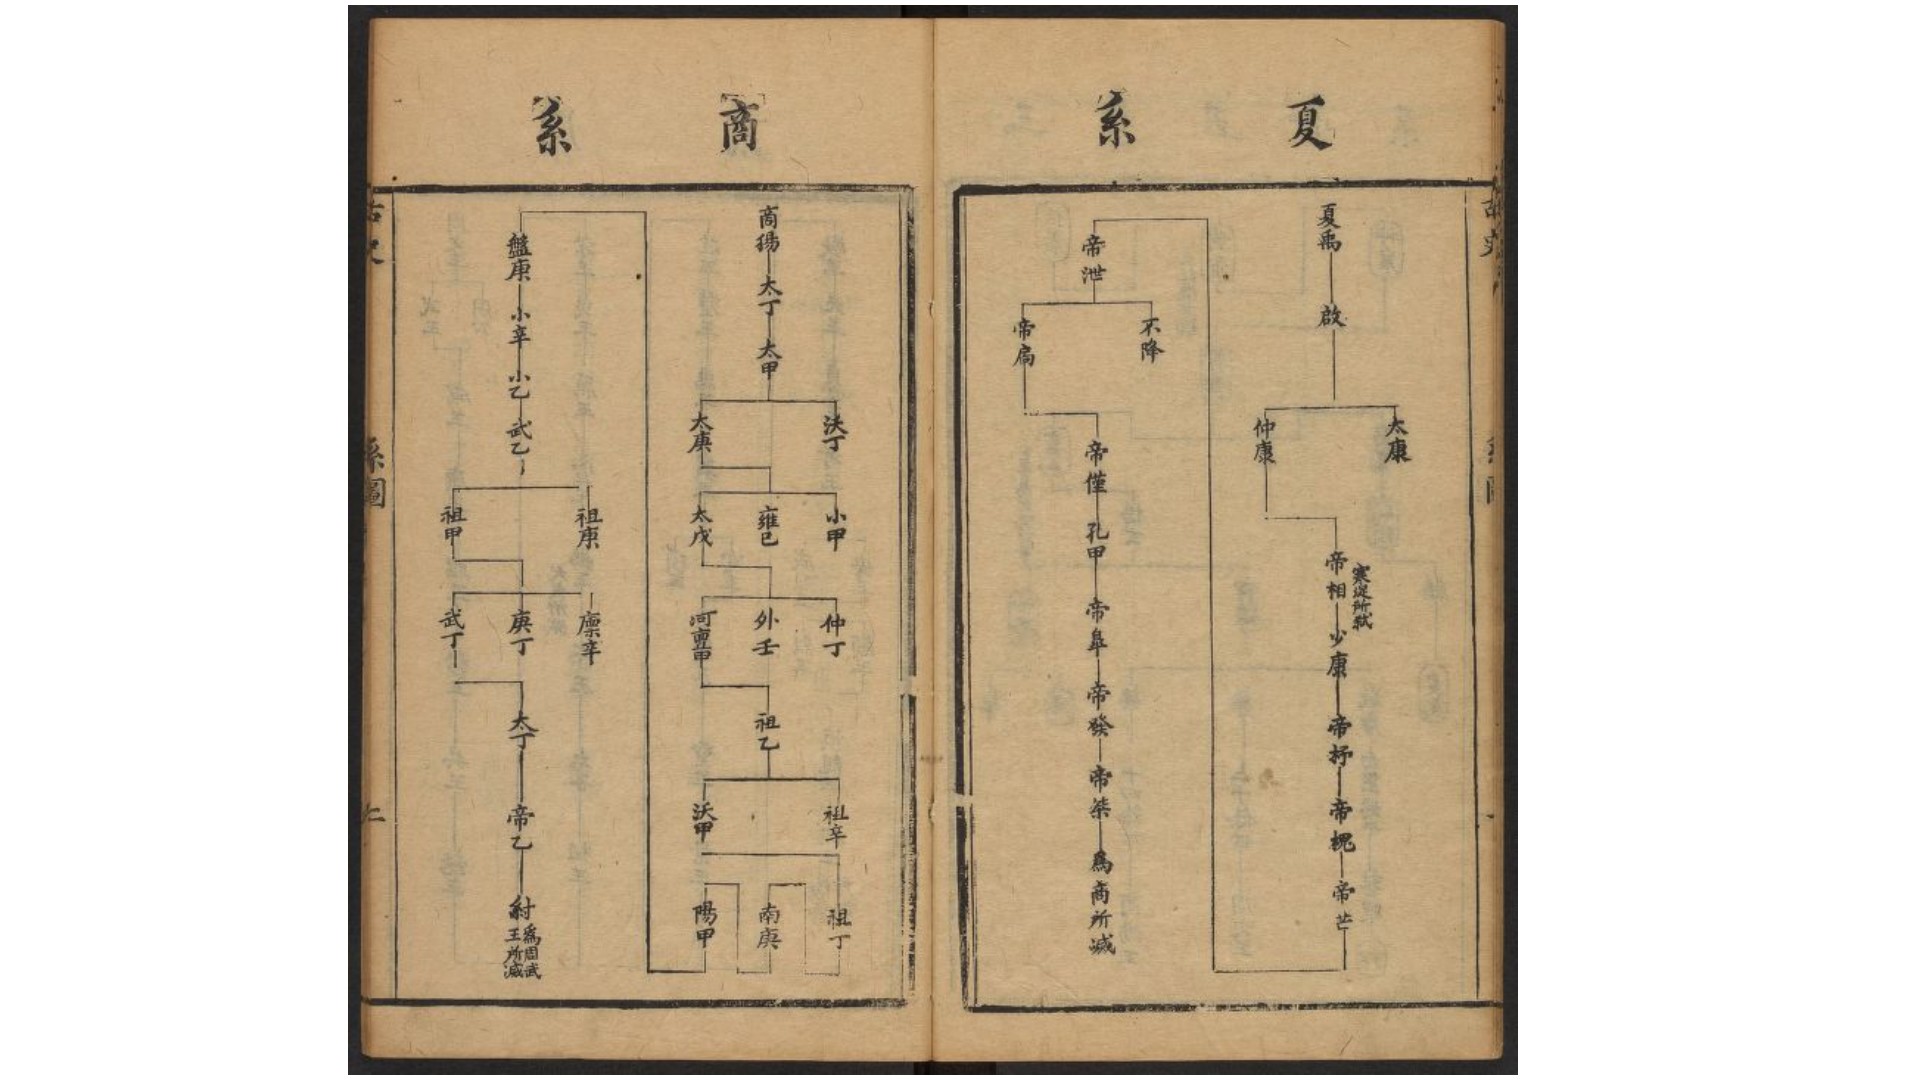 夏系
夏禹
啟
太康
仲康
帝相
寒浞所弒
少康
帝杼
帝槐
帝芒
帝泄
不降
帝扃
帝僅
孔甲
帝皐
帝發
帝桀
爲商所滅
商系
商湯
太丁
太甲
沃丁
太庚
小甲
雍己
太戊
仲丁
外壬
河亶甲
祖乙
祖辛
沃甲
祖丁
南庚
陽甲
盤庚
小辛
小乙
武乙
祖庚
祖甲
廩辛
庚丁
武丁
太丁
帝乙
紂
爲周武
王所滅
古史
系圖
二